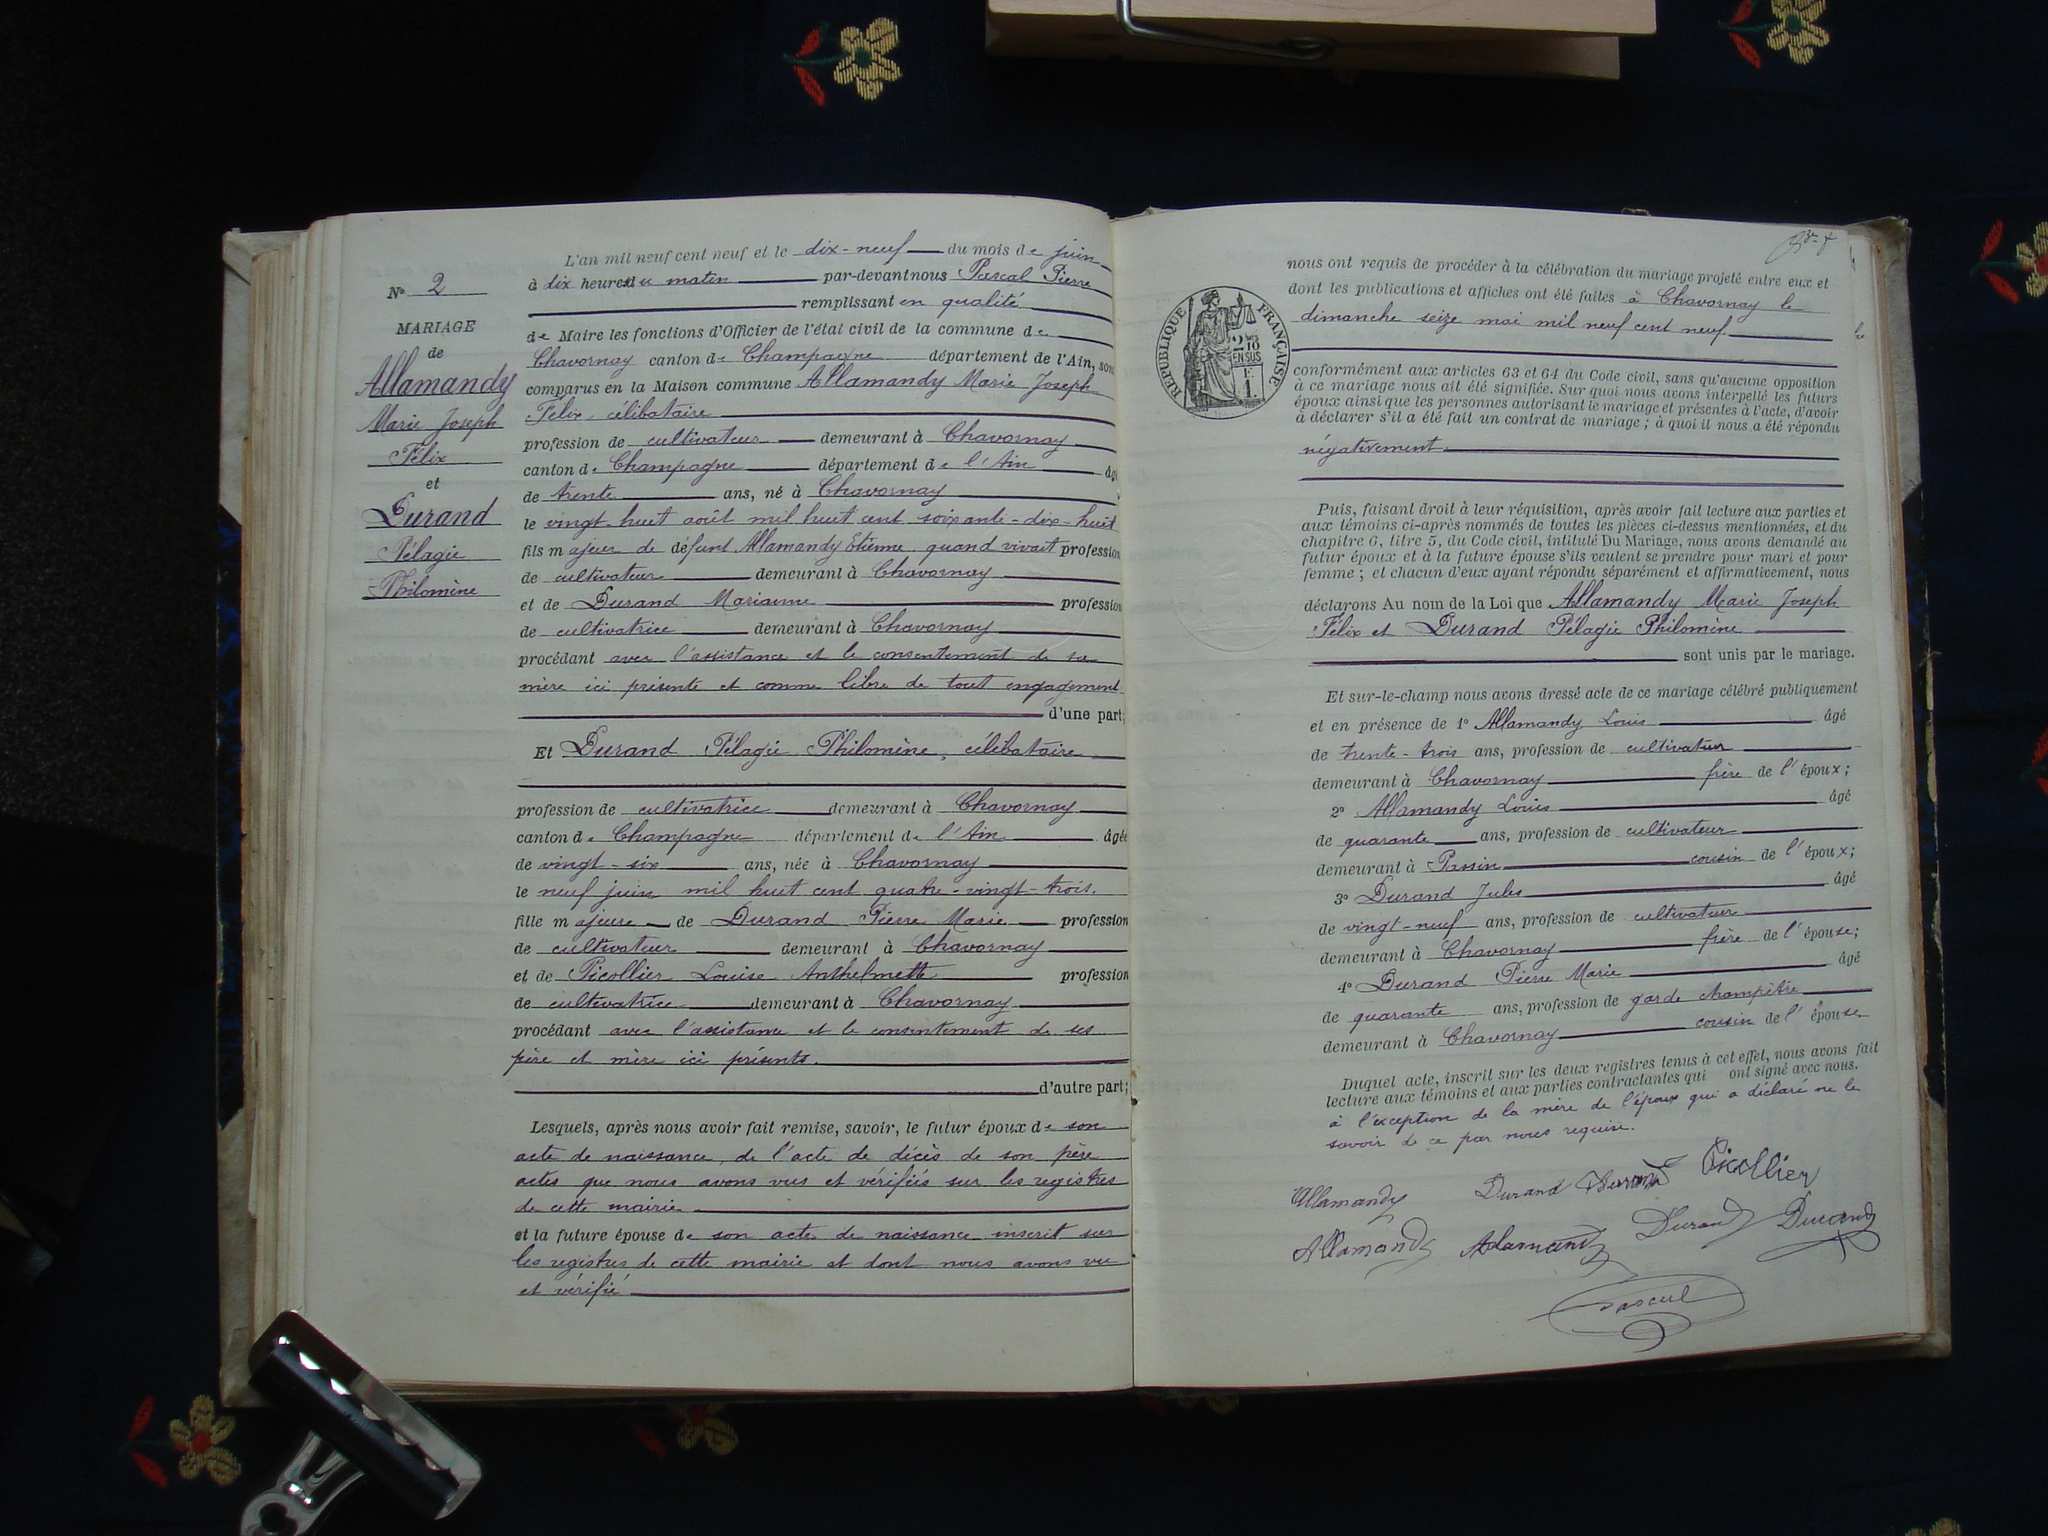 N° 2
MARIAGE
de
Allamandy
Marie Joseph
Félix
et
Durand
Pélagie
Philomène
L'an mil neuf cent neuf et le dix-neuf du mois de juin
à dix heures du matin par-devant nous Pascal Pierre
remplissant en qualité
de Maire les fonctions d'Officier de l'état civil de la commune de
Chavornay canton de Champagne département de l'Ain, son
comparus en la Maison commune Allamandy Marie Joseph
Félix, célibataire
profession de cultivateur demeurant à Chavornay
canton de Champagne département de l'Ain âgé
de trente ans, né à Chavornay
le vingt-huit août mil huit cent soixante-dix-huit
fils majeur de défunt Allamandy Etienne quand vivait profession
de cultivateur demeurant à Chavornay
et de Durand Marianne profession
de cultivatrice demeurant à Chavornay
procédant avec l'assistance et le consentement de sa
mère ici présente et comme libre de tout engagement
d'une part;
Et Durand Pélagie Philomène, célibataire
profession de cultivatrice demeurant à Chavornay
canton de Champagne département de l'Ain âgée
de vingt-six ans, née à Chavornay
le neuf juin mil huit cent quatre-vingt-trois.
fille majeure de Durand Pierre Marie profession
de cultivateur demeurant à Chavornay
et de Picollier Louise Anthelmette profession
de cultivatrice demeurant à Chavornay
procédant avec l'assistance et le consentement de ses
père et mère ici présents.
d'autre part;
Lesquels, après nous avoir fait remise, savoir, le futur époux de son
acte de naissance, de l'acte de décès de son père
actes que nous avons vus et vérifiés sur les registres
de cette mairie
et la future épouse de son acte de naissance inscrit sur
les registres de cette mairie et dont nous avons vu
et vérifié
RÉPUBLIQUE FRANÇAISE
2/10
EN SUS
F.
1.
nous ont requis de procéder à la célébration du mariage projeté entre eux et
dont les publications et affiches ont été faites à Chavornay le
dimanche seize mai mil neuf cent neuf.
conformément aux articles 63 et 64 du Code civil, sans qu'aucune opposition
à ce mariage nous ait été signifiée. Sur quoi nous avons interpellé les futurs
époux ainsi que les personnes autorisant le mariage et présentes à l'acte, d'avoir
à déclarer s'il a été fait un contrat de mariage ; à quoi il nous a été répondu
négativement
Puis, faisant droit à leur réquisition, après avoir fait lecture aux parties et
aux témoins ci-après nommés de toutes les pièces ci-dessus mentionnées, et du
chapitre 6, titre 5, du Code civil, intitulé Du Mariage, nous avons demandé au
futur époux et à la future épouse s'ils veulent se prendre pour mari et pour
femme ; et chacun d'eux ayant répondu séparément et affirmativement, nous
déclarons Au nom de la Loi que Allamandy Marie Joseph
Félix et Durand Pélagie Philomène
sont unis par le mariage.
Et sur-le-champ nous avons dressé acte de ce mariage célébré publiquement
et en présence de 1° Allamandy Louis âgé
de trente-trois ans, profession de cultivateur
demeurant à Chavornay frère de l'époux;
2° Allamandy Louis âgé
de quarante ans, profession de cultivateur
demeurant à Passin cousin de l'époux;
3° Durand Jules âgé
de vingt-neuf ans, profession de cultivateur
demeurant à Chavornay frère de l'épouse;
4° Durand Pierre Marie âgé
de quarante ans, profession de garde champêtre
demeurant à Chavornay cousin de l'épouse
Duquel acte, inscrit sur les deux registres tenus à cet effet, nous avons fait
lecture aux témoins et aux parties contractantes qui ont signé avec nous.
à l'exception de la mère de l'époux qui a déclaré ne le
savoir de ce par nous requise.
Allamandy Durand Durand Picollier
Allamandy Allamandy Durand Durand
Pascal